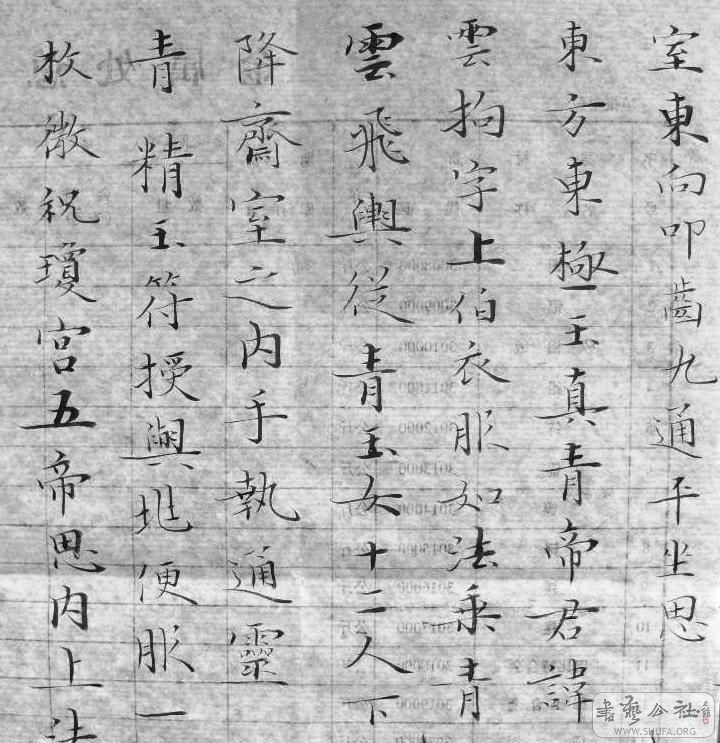 室東向叩齒九通平坐思
東方東極玉真青帝君諱
雲拘字上伯衣服如法乘青
雲飛輿從青玉女十二人下
降齋室之内手執通靈
青精玉符授與兆便服一
枚微祝瓊宮五帝思内上法
書藝公社
WWW.SHUFA.ORG